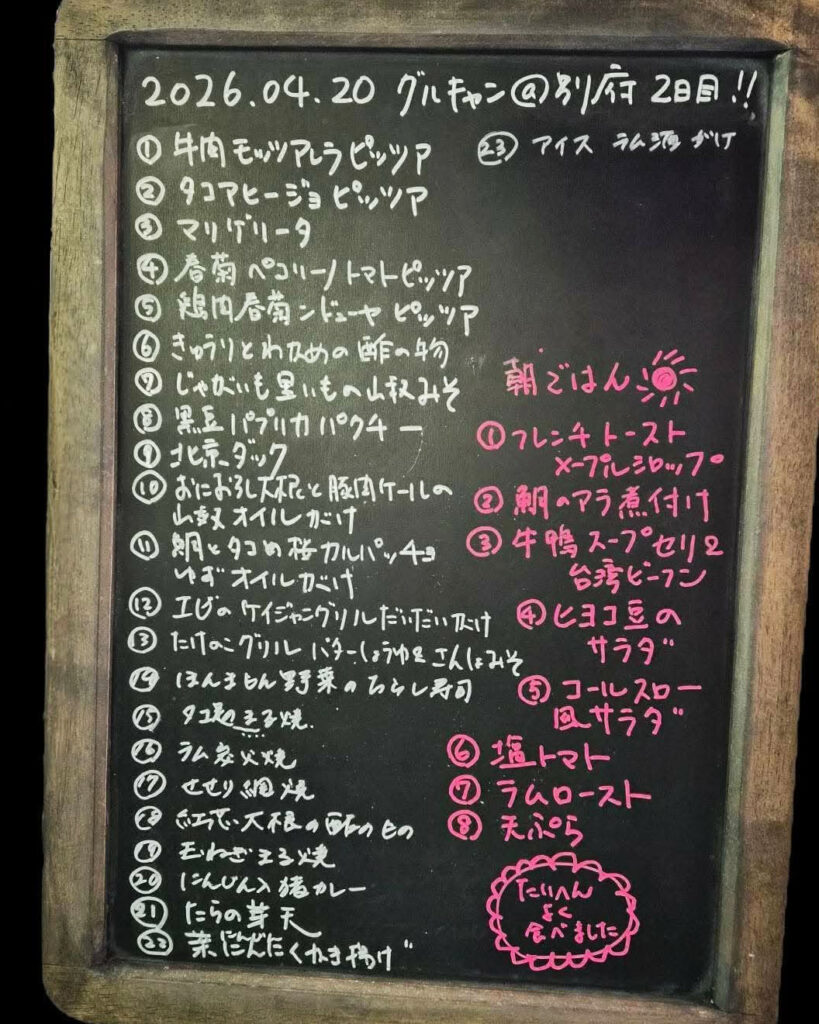 2026.04.20 グルキャン@別府 2日目!!
① 牛肉モッツアレラピッツア
② タコアヒージョピッツア
③ マリゲリータ
④ 春菊ペコリーノトマトピッツア
⑤ 鶏肉春菊ンドゥーヤ ピッツア
⑥ きゅうりとわかめの酢の物
⑦ じゃがいも里いもの山椒みそ
⑧ 黒豆パプリカパクチー
⑨ 北京ダック
⑩ おにおろし大根と豚肉ケールの
山椒オイルがけ
⑪ 鯛とタコの桜カルパッチョ
ゆずオイルがけ
⑫ エビのケイジャングリルだいだいがけ
⑬ たけのこグリル バターしょうゆ&さんしょみそ
⑭ 野菜のちらし寿司
⑮ タコ 玉子焼
⑯ ラム炭火焼
⑰ せせり網焼
⑱ 大根の酢のもの
⑲ 玉ねぎ玉子焼
⑳ にんじん入猪カレー
㉑ たらの芽天
㉒ 葉にんにくかき揚げ
㉓ アイス ラム酒がけ
朝ごはん
① フレンチトースト
メープルシロップ
② 鯛のアラ煮付け
③ 牛鴨スープセリ&
台湾ビーフン
④ ヒヨコ豆の
サラダ
⑤ コールスロー
風サラダ
⑥ 塩トマト
⑦ ラムロースト
⑧ 天ぷら
たいへん
よく
食べました